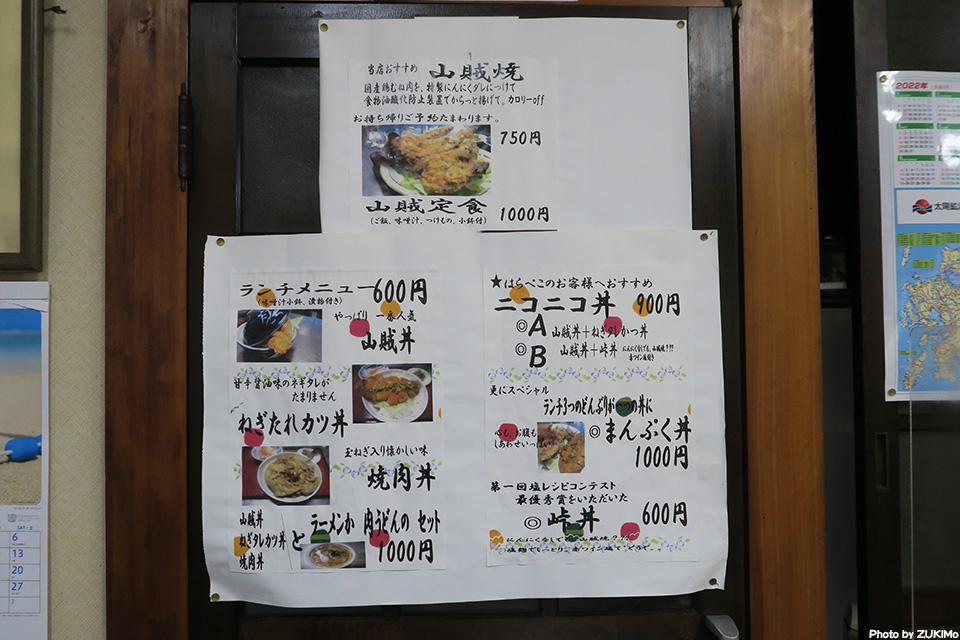 当店おすすめ 山賊焼
国産鶏むね肉を、特製にんにくダレにつけて
食物油酸化防止装置でからっと揚げて、カロリーoff
お持ち帰りご予約たまわります。
750円
山賊定食
(ご飯、味噌汁、つけもの、小鉢付) 1000円
ランチメニュー 600円
(味噌汁小鉢、漬物付き)
やっぱり 一番人気
山賊丼
甘辛醤油味のネギタレが
たまりません
ねぎたれカツ丼
玉ねぎ入り懐かしい味
焼肉丼
山賊丼
ねぎタレカツ丼
焼肉丼
と ラーメンか 肉うどんの セット
1000円
★はらぺこのお客様へおすすめ
ニコニコ丼 900円
◎A 山賊丼+ねぎタレかつ丼
◎B 山賊丼+峠丼
更にスペシャル
ランチ3つのどんぶりが 丼に
心も、お腹も
しあわせいっぱい
◎まんぷく丼
1000円
第一回塩レシピコンテスト
最優秀賞をいただいた
◎峠丼 600円
2022年
SAT・土
6
13
20
27
Photo by ZUKIMo